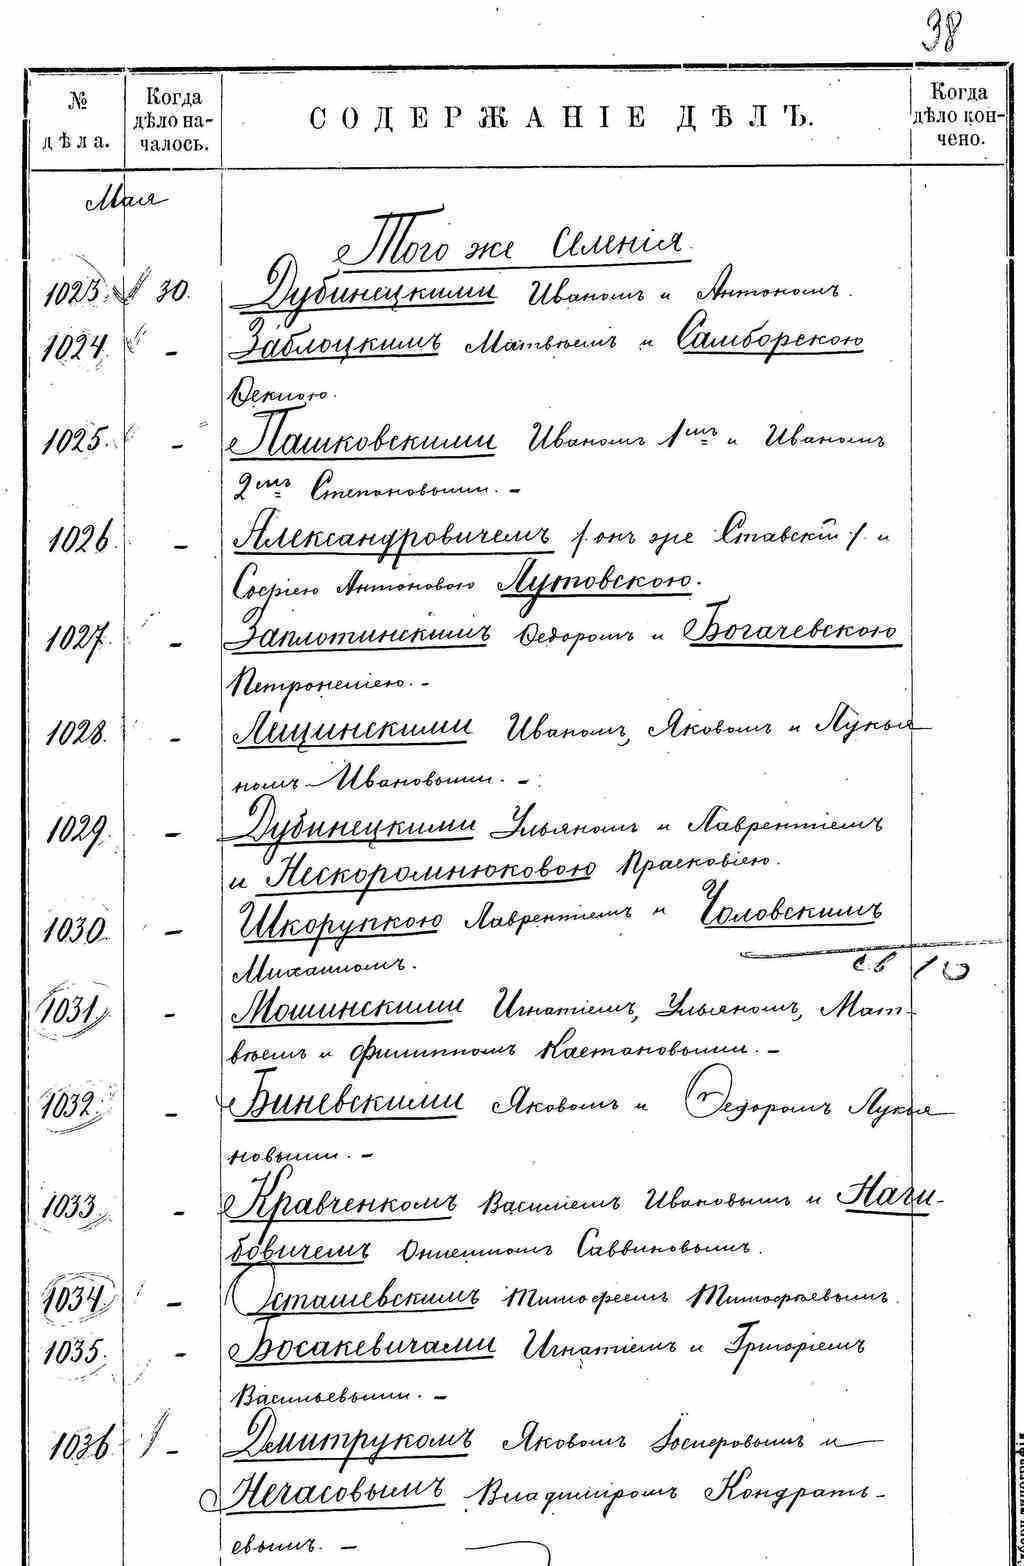 38
№ дѣла.
Когда дѣло на-
чалось.
СОДЕРЖАНІЕ ДѢЛЪ.
Когда дѣло кон-
чено.
Мая
Того же Селенія.
1023. 30. Дубинецкими Иваномъ и Антономъ.
1024. - Заблоцкимъ Матвѣемъ и Самборскою
Ѳеклою.
1025. - Пашковскими Иваномъ 1мъ и Иваномъ
2мъ Степановыми. -
1026. - Александровичемъ /. онъ же Ставскій ./. и
Софіею Антоновою Лутовскою.
1027. - Заплотинскимъ Ѳедоромъ и Богачевскою
Петронелію. -
1028. - Лещинскими Иваномъ, Яковомъ и Лукья
номъ Ивановыми. -
1029. - Дубинецкими Ульяномъ и Лаврентіемъ
и Нескоромнюковою Прасковіею.
1030. - Шкорупкою Лаврентіемъ и Чоловскимъ
Михаиломъ.
1031. - Мошинскими Игнатіемъ, Ульяномъ, Мат-
вѣемъ и Филиппомъ Каетановыми. -
1032. - Биневскими Яковомъ и Ѳедоромъ Лукья
новыми. -
1033. - Кравченкомъ Василіемъ Ивановымъ и Наги-
бовичемъ Онисимомъ Саввиновымъ.
1034. - Осташевскимъ Тимофеемъ Тимофѣевымъ.
1035. - Босакевичами Игнатіемъ и Григоріемъ
Васильевыми. -
1036. - Дмитрукомъ Яковомъ Іосифовымъ и
Нечасовымъ Владиміромъ Кондрать-
евымъ. -